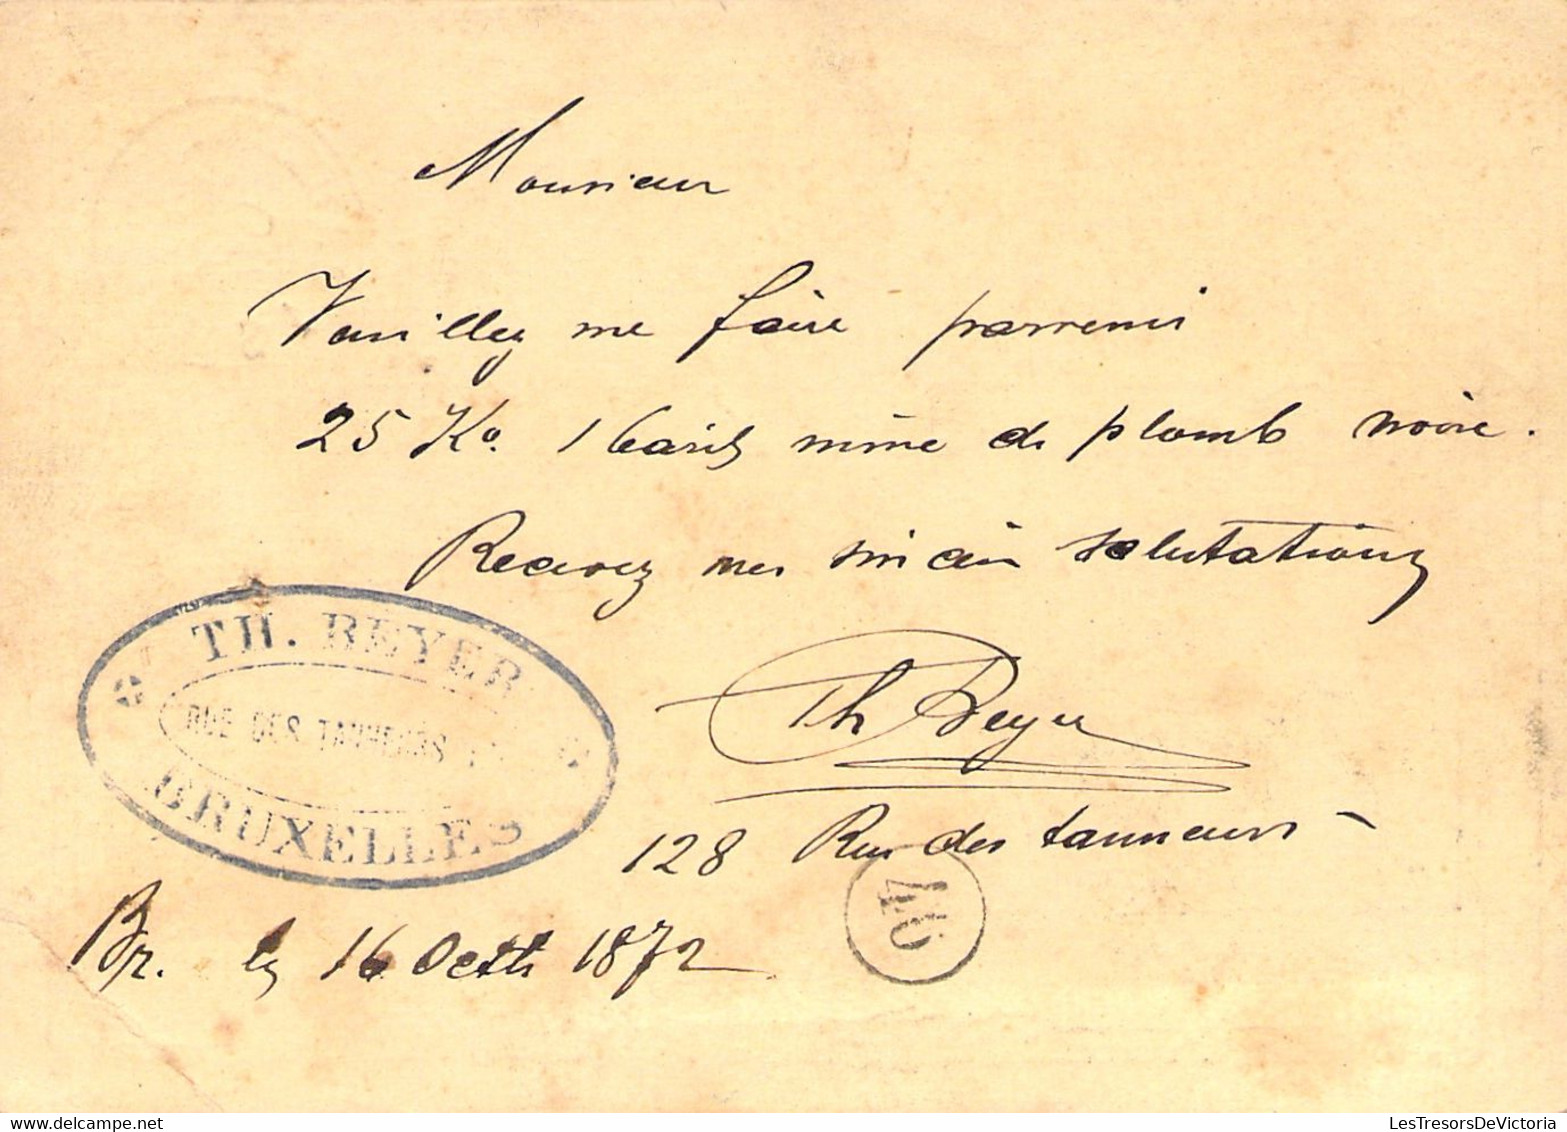 Monsieur
Veuillez me faire parvenir
25 Ko. 1 baril mine de plomb noire.
Recevez mes sincères salutations
Th Beyer
128 Rue des tanneurs -
Br. le 16 Octb 1872
TH. BEYER
RUE DES TANNEURS
BRUXELLES
46
LesTresorsDeVictoria